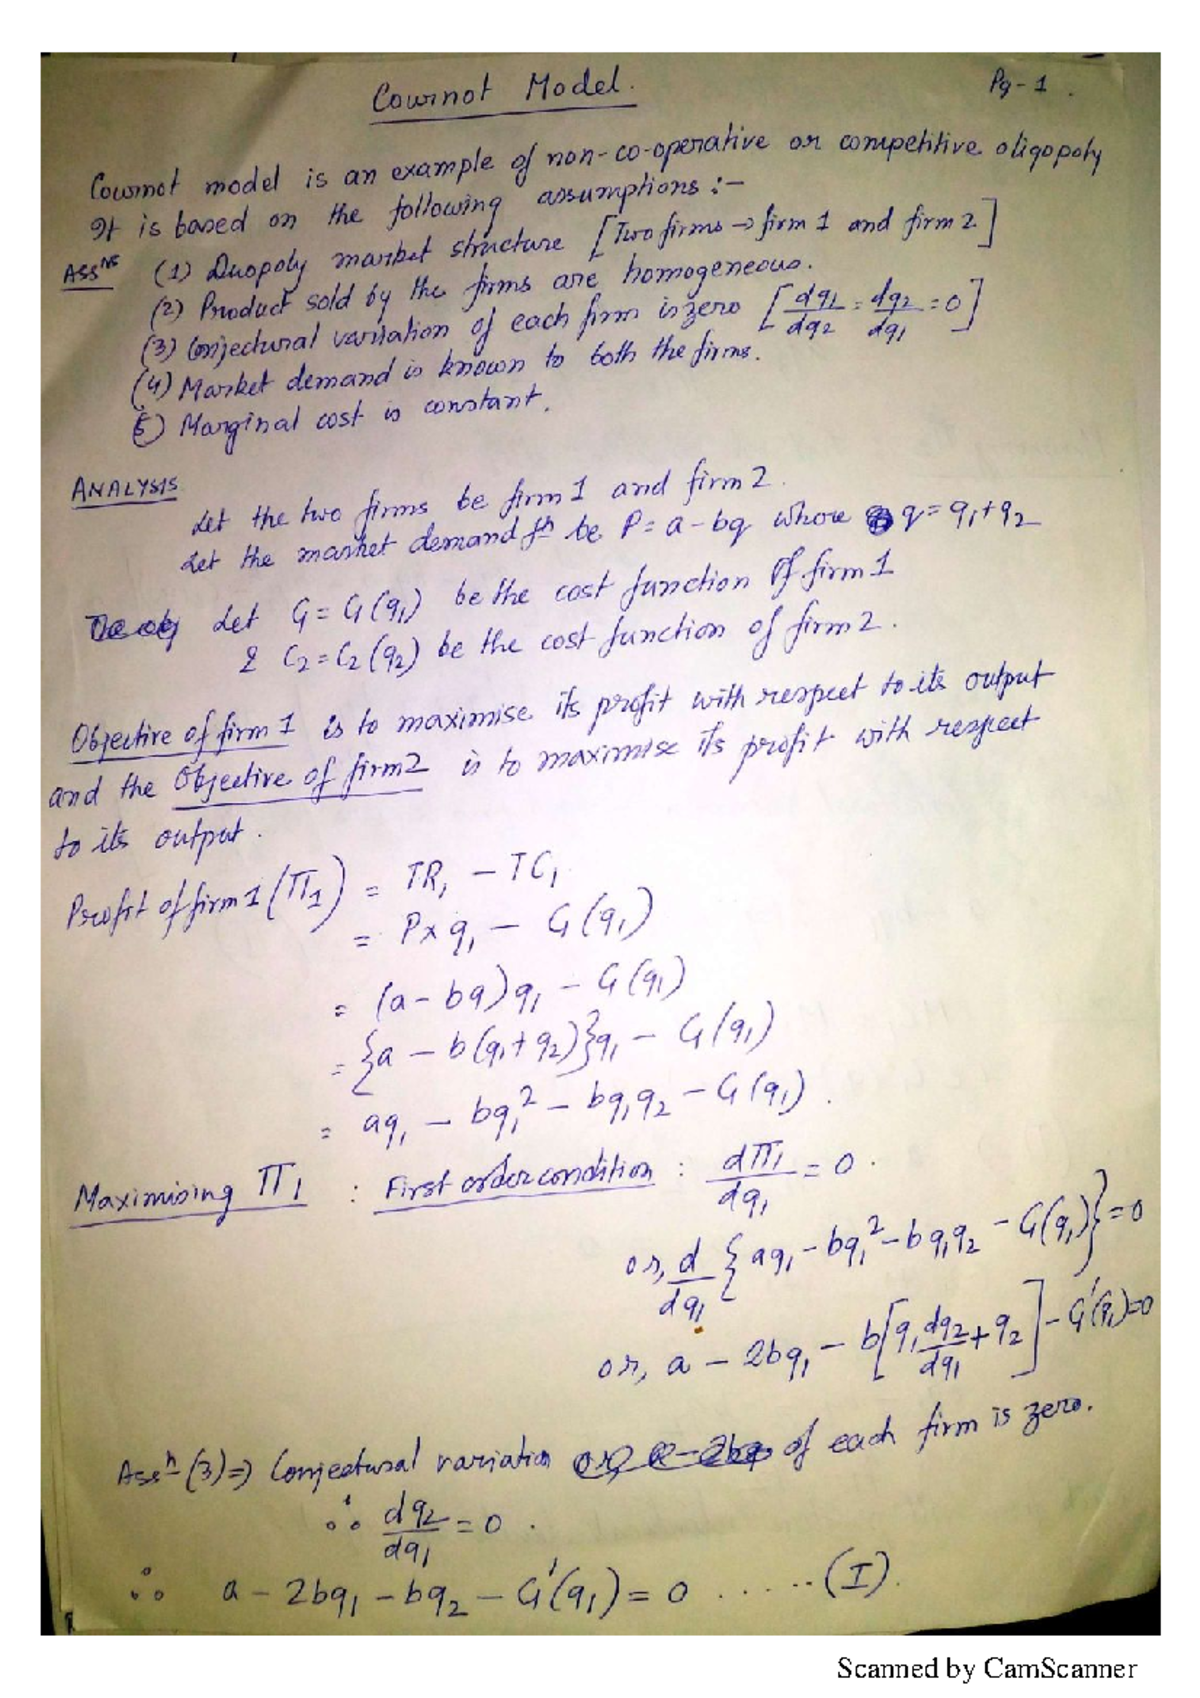 Cournot Model.
Pg-1.
Cournot model is an example of non-co-operative or competitive oligopoly
It is based on the following assumptions :-
Assns (1) Duopoly market structure [Two firms → firm 1 and firm 2]
(2) Product sold by the firms are homogeneous.
(3) Conjectural variation of each firm is zero [dq1/dq2 = dq2/dq1 = 0]
(4) Market demand is known to both the firms.
(5) Marginal cost is constant.
ANALYSIS
Let the two firms be firm 1 and firm 2.
Let the market demand fn be P = a - bq where q = q1 + q2
Let C1 = C1(q1) be the cost function of firm 1
& C2 = C2(q2) be the cost function of firm 2.
Objective of firm 1 is to maximise its profit with respect to its output
and the Objective of firm 2 is to maximise its profit with respect
to its output.
Profit of firm 1 (Π1) = TR1 - TC1
= P x q1 - C1(q1)
= (a - bq)q1 - C1(q1)
= {a - b(q1 + q2)}q1 - C1(q1)
= aq1 - bq1² - bq1q2 - C1(q1).
Maximising Π1 : First order condition : dΠ1/dq1 = 0.
or, d/dq1 {aq1 - bq1² - bq1q2 - C1(q1)} = 0
or, a - 2bq1 - b[q1 dq2/dq1 + q2] - C1'(q1) = 0
Assn (3) ⇒ Conjectural variation of each firm is zero.
∴ dq2/dq1 = 0.
∴ a - 2bq1 - bq2 - C1'(q1) = 0 ...... (I).
Scanned by CamScanner